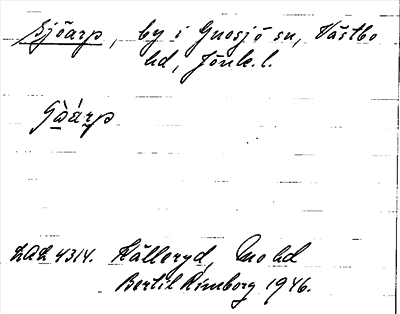 Sjöarp, by i Gnosjö sn, Västbo
hd, Jönk. l.
LAL 4314. Källeryd, Mo hd
Bertil Rimborg 1946.